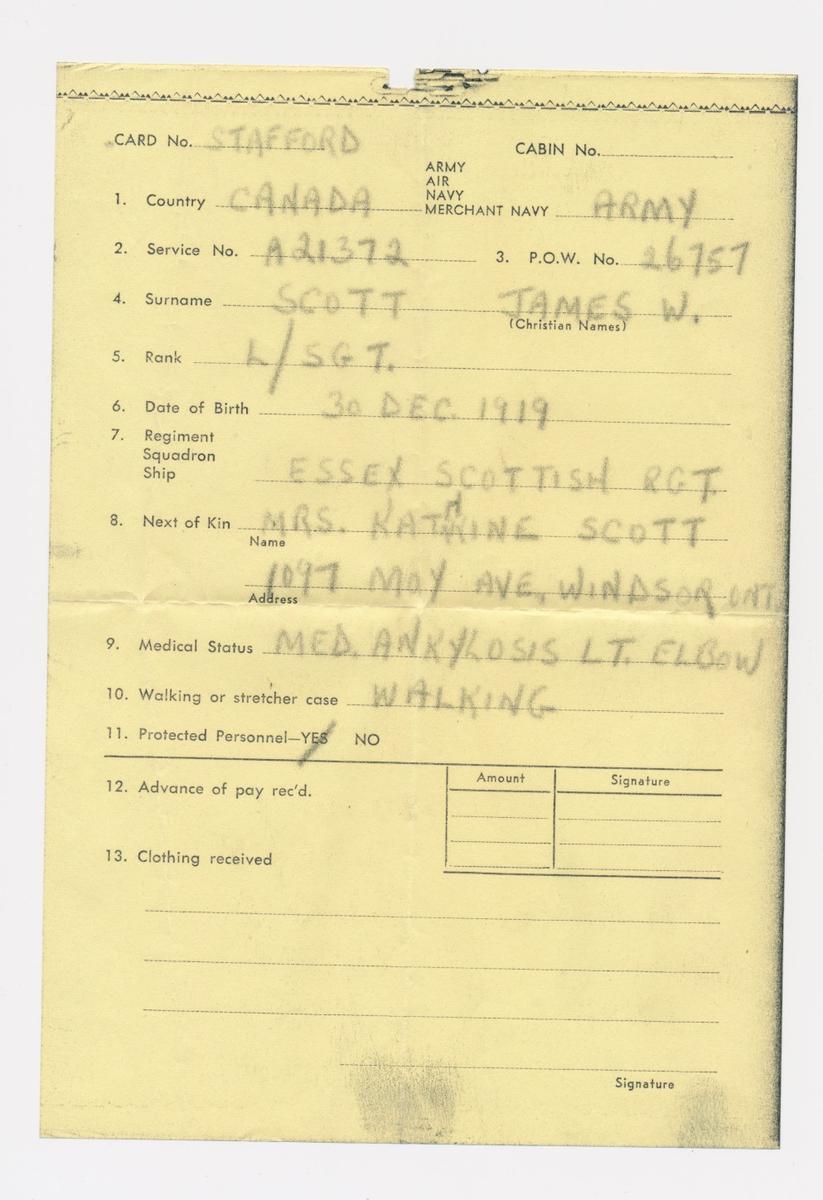 CARD No. STAFFORD CABIN No.
ARMY
AIR
NAVY
1. Country CANADA MERCHANT NAVY ARMY
2. Service No. A21372 3. P.O.W. No. 26757
4. Surname SCOTT JAMES W.
(Christian Names)
5. Rank L/SGT.
6. Date of Birth 30 DEC. 1919
7. Regiment
Squadron
Ship ESSEX SCOTTISH RGT.
8. Next of Kin MRS. KATHRINE SCOTT
Name
1097 MOY AVE, WINDSOR ONT.
Address
9. Medical Status MED. ANKYLOSIS LT. ELBOW
10. Walking or stretcher case WALKING
11. Protected Personnel—YES NO
Amount Signature
12. Advance of pay rec'd.
13. Clothing received
Signature